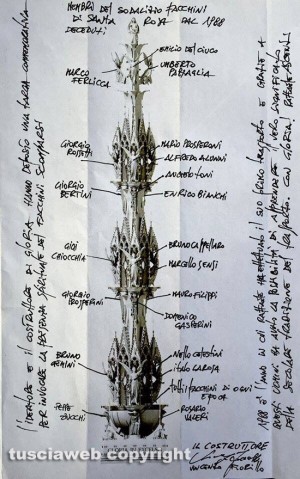 MEMBRI DEL SODALIZIO FACCHINI
DI SANTA ROSA DAL 1988
DECEDUTI
EMILIO DEL CIUCO
UMBERTO
PASSAGLIA
MARCO
FERLICCA
GIORGIO
ROSSETTI
MARIO PROSPERONI
ALFREDO ALUNNI
ANGELO TONI
GIORGIO
BERTINI
ENRICO BIANCHI
GIGI
CHIOCCHIA
BRUNO CAPPELLARO
MARCELLO SENSI
GIORGIO
PROSPERINI
MAURO FILIPPI
DOMENICO
GASPERINI
BRUNO
NELLO CELESTINI
ITALO LAROSA
TUTTI I FACCHINI DI OGNI
EPOCA
PEPPE
ZUCCHI
ROSARIO
VALERI
L'IDEATORE E IL COSTRUTTORE DI GLORIA HANNO DEDICATO UNA TARGA COMMEMORATIVA
PER INVOCARE LA PRESENZA SPIRITUALE DEI FACCHINI SCOMPARSI
1988 È L'ANNO IN CUI RAFFAELE HA EFFETTUATO IL SUO PRIMO TRASPORTO E GRAZIE A
QUESTI UOMINI HA AVUTO LA POSSIBILITÀ DI APPRENDERE IL VERO SIGNIFICATO
DELLA SECOLARE TRADIZIONE DEL TRASPORTO. CON GLORIA! RAFFAELE ASCENZI
IL COSTRUTTORE
VINCENZO FIORILLO
tusciaweb copyright